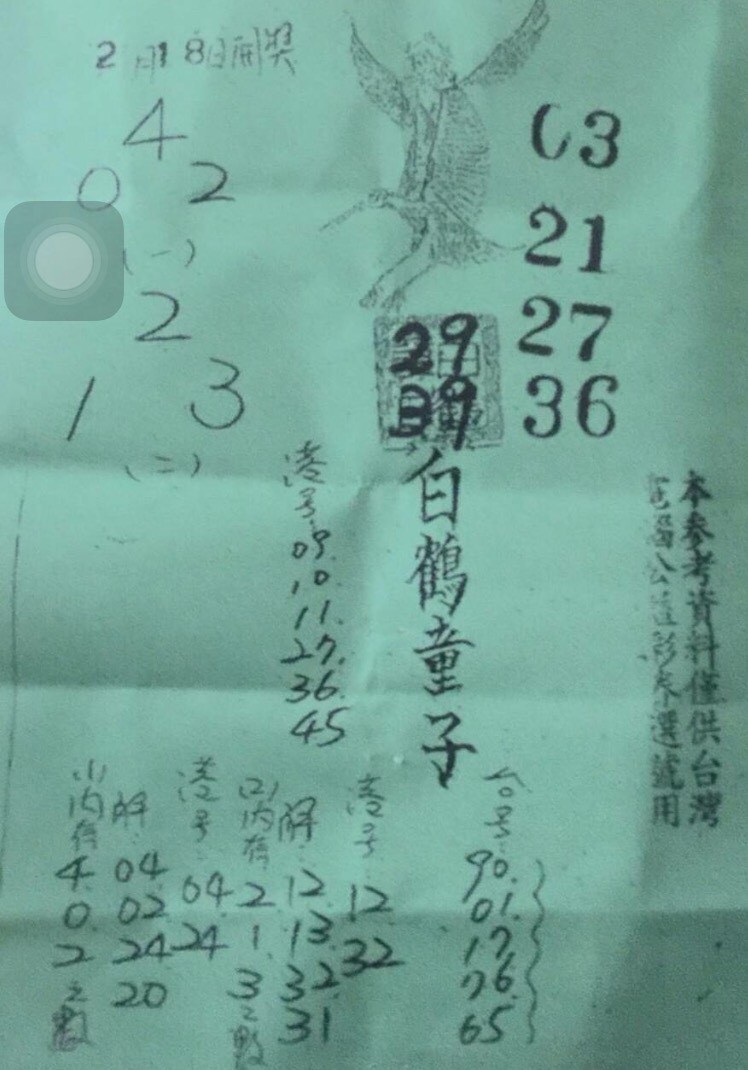 2月18日開獎
4
0 2
(一)
2
1 3
(二)
03
21
27
36
29
39
白鶴童子
本參考資料僅供台灣
電腦公益彩券選號用
港号
09.
10.
11.
27.
36.
45
(1)内存
4
0
2
之數
解
04
02
24
20
港号
04
24
(2)内存
2
1
3
之數
解
12
13
32
31
港号
12
32
台号
90.
01.
17
76
65